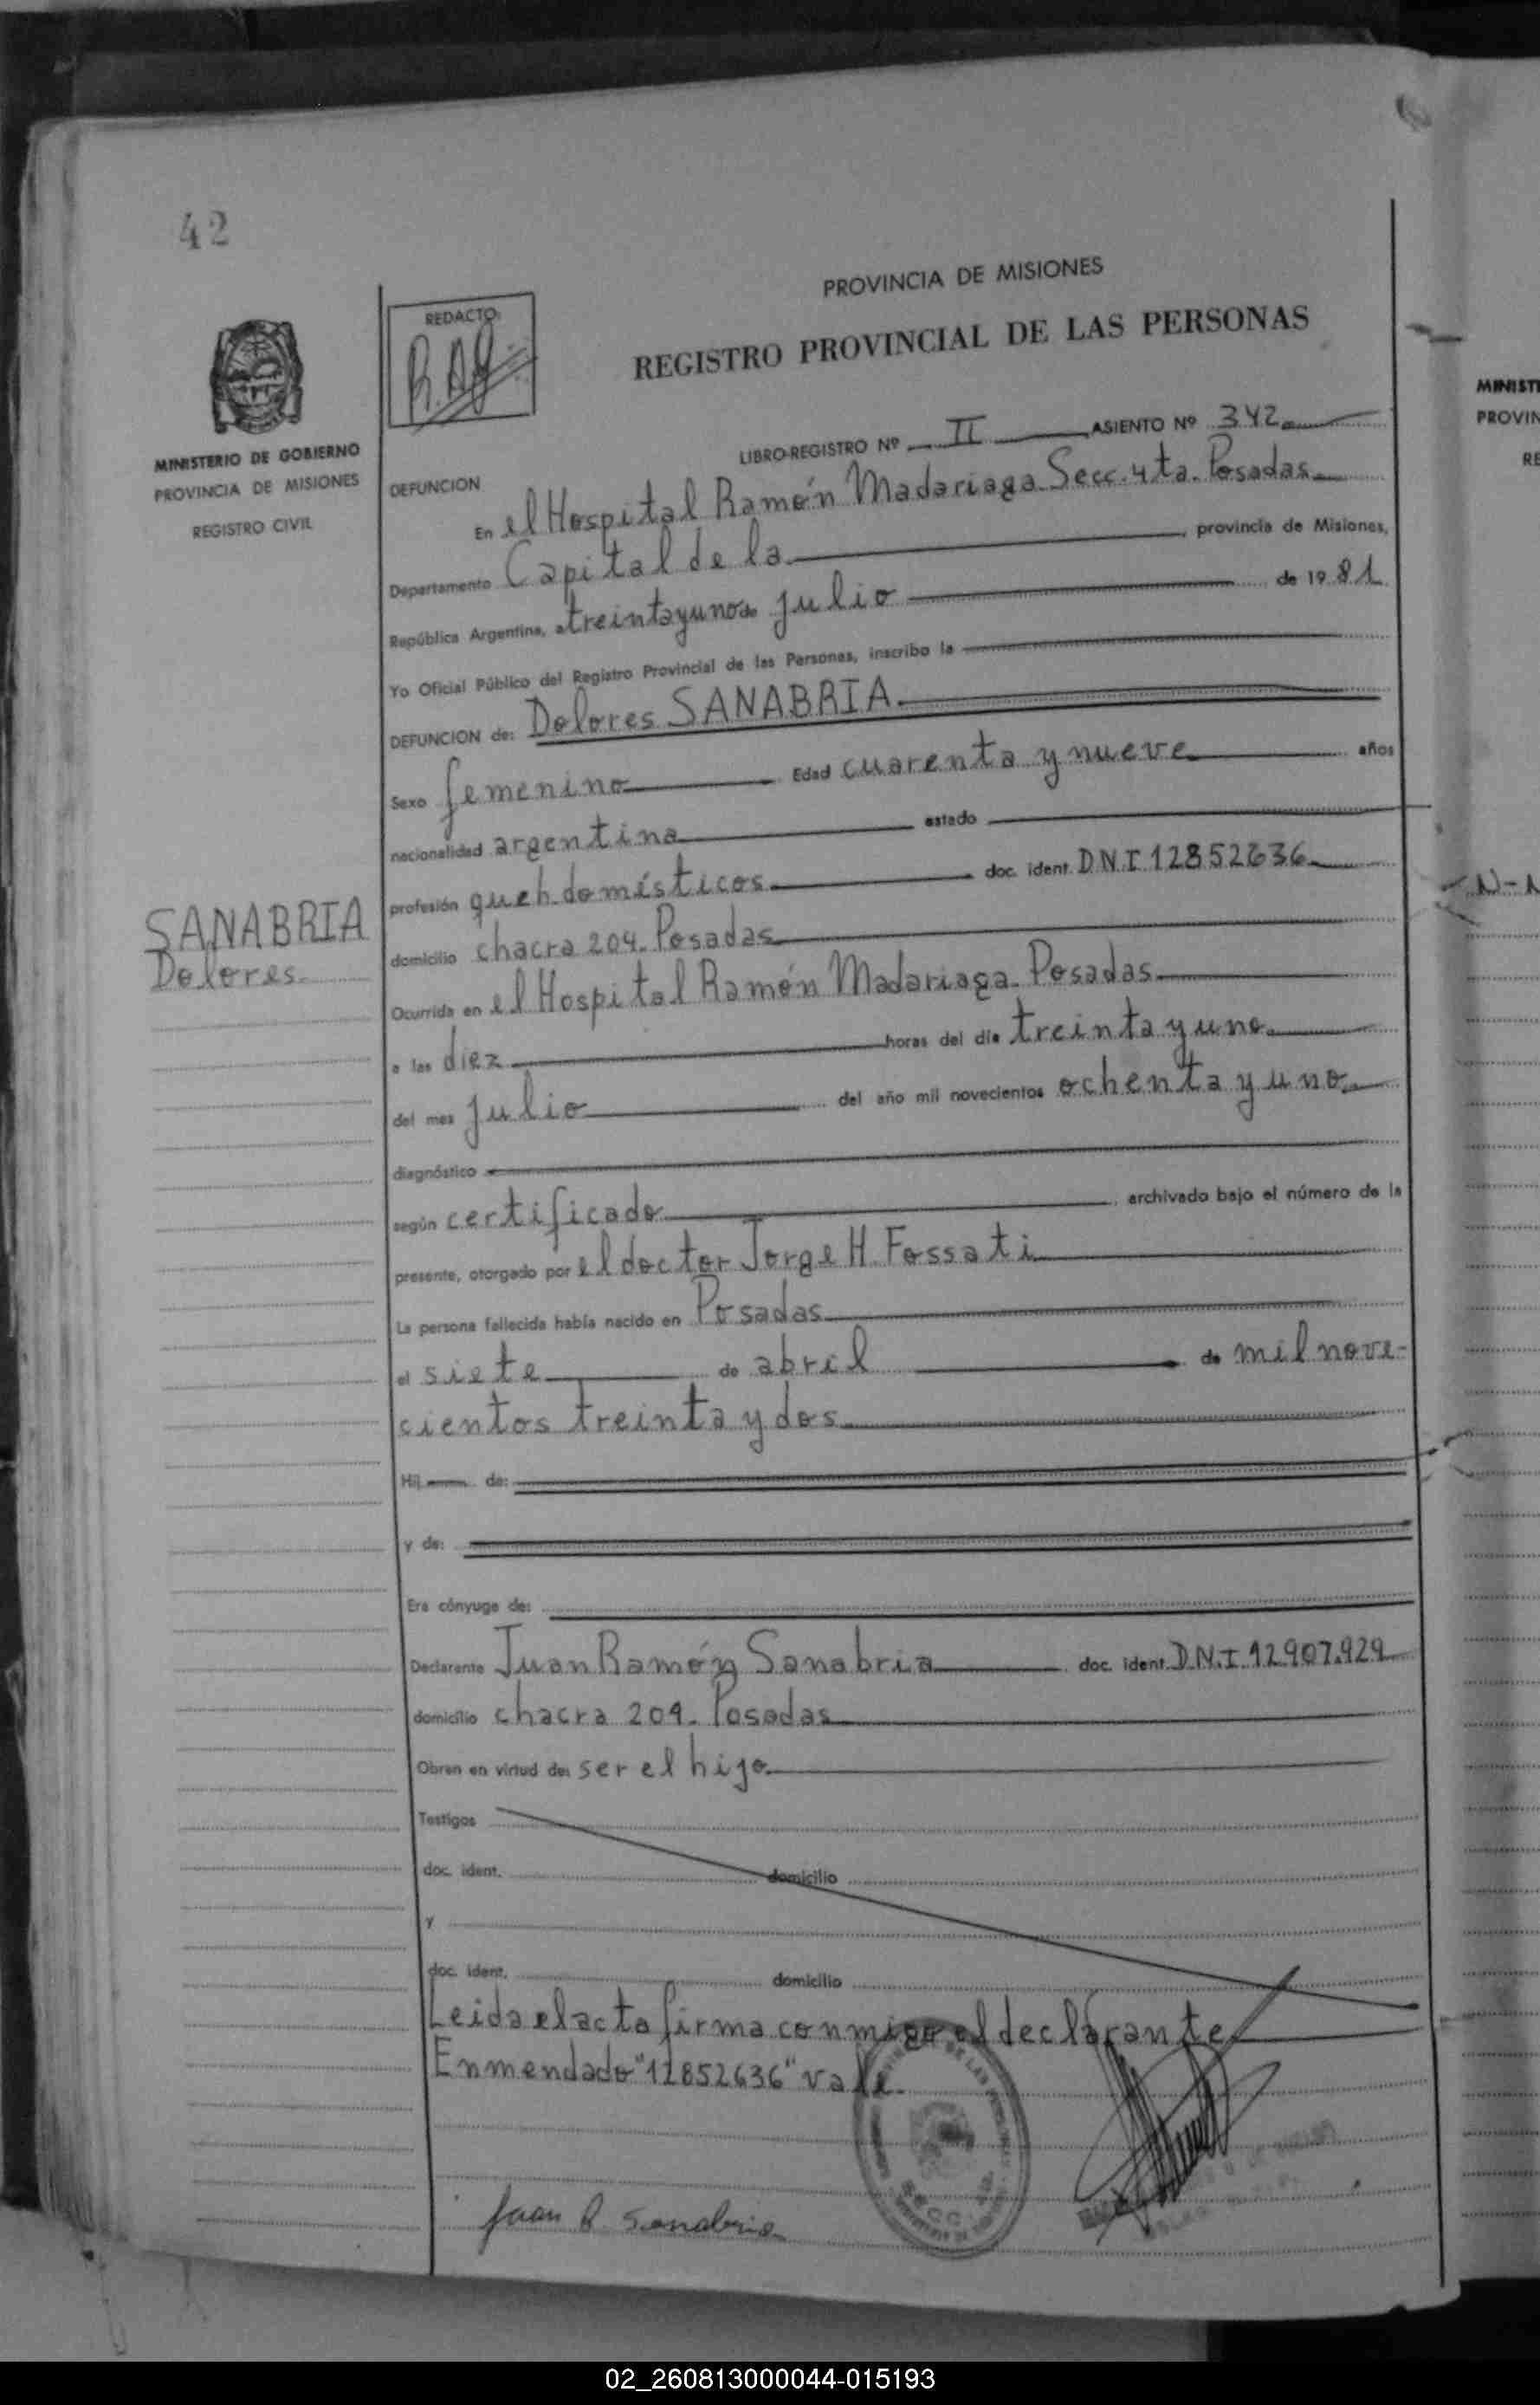 42
PROVINCIA DE MISIONES
REDACTO:
REGISTRO PROVINCIAL DE LAS PERSONAS
MINISTERIO DE GOBIERNO
PROVINCIA DE MISIONES
REGISTRO CIVIL
LIBRO-REGISTRO Nº II ASIENTO Nº 342
DEFUNCION
En el Hospital Ramón Madariaga Secc. 4ta. Posadas
Departamento Capital de la provincia de Misiones,
República Argentina, a treinta y uno de julio de 1981
Yo Oficial Público del Registro Provincial de las Personas, inscribo la
DEFUNCION de: Dolores SANABRIA
Sexo femenino Edad cuarenta y nueve años
nacionalidad argentina estado
profesión queh. domésticos doc. ident. D.N.I 12852636
SANABRIA
Dolores
domicilio chacra 204. Posadas
Ocurrida en el Hospital Ramón Madariaga. Posadas
a las diez horas del día treinta y uno
del mes julio del año mil novecientos ochenta y uno
diagnóstico
según certificado archivado bajo el número de la
presente, otorgado por el doctor Jorge H. Fossati
La persona fallecida había nacido en Posadas
el siete de abril de mil nove-
cientos treinta y dos
Hij de:
y de:
Era cónyuge de:
Declarante Juan Ramón Sanabria doc. ident. D.N.I. 12.907.929
domicilio chacra 204. Posadas
Obran en virtud de: ser el hijo
Testigos
doc. ident. domicilio
y
doc. ident. domicilio
Leida el acta firma conmigo el declarante
Enmendado "12852636" vale.
Juan R Sanabria
MINIST
PROVIN
RE
02_260813000044-015193